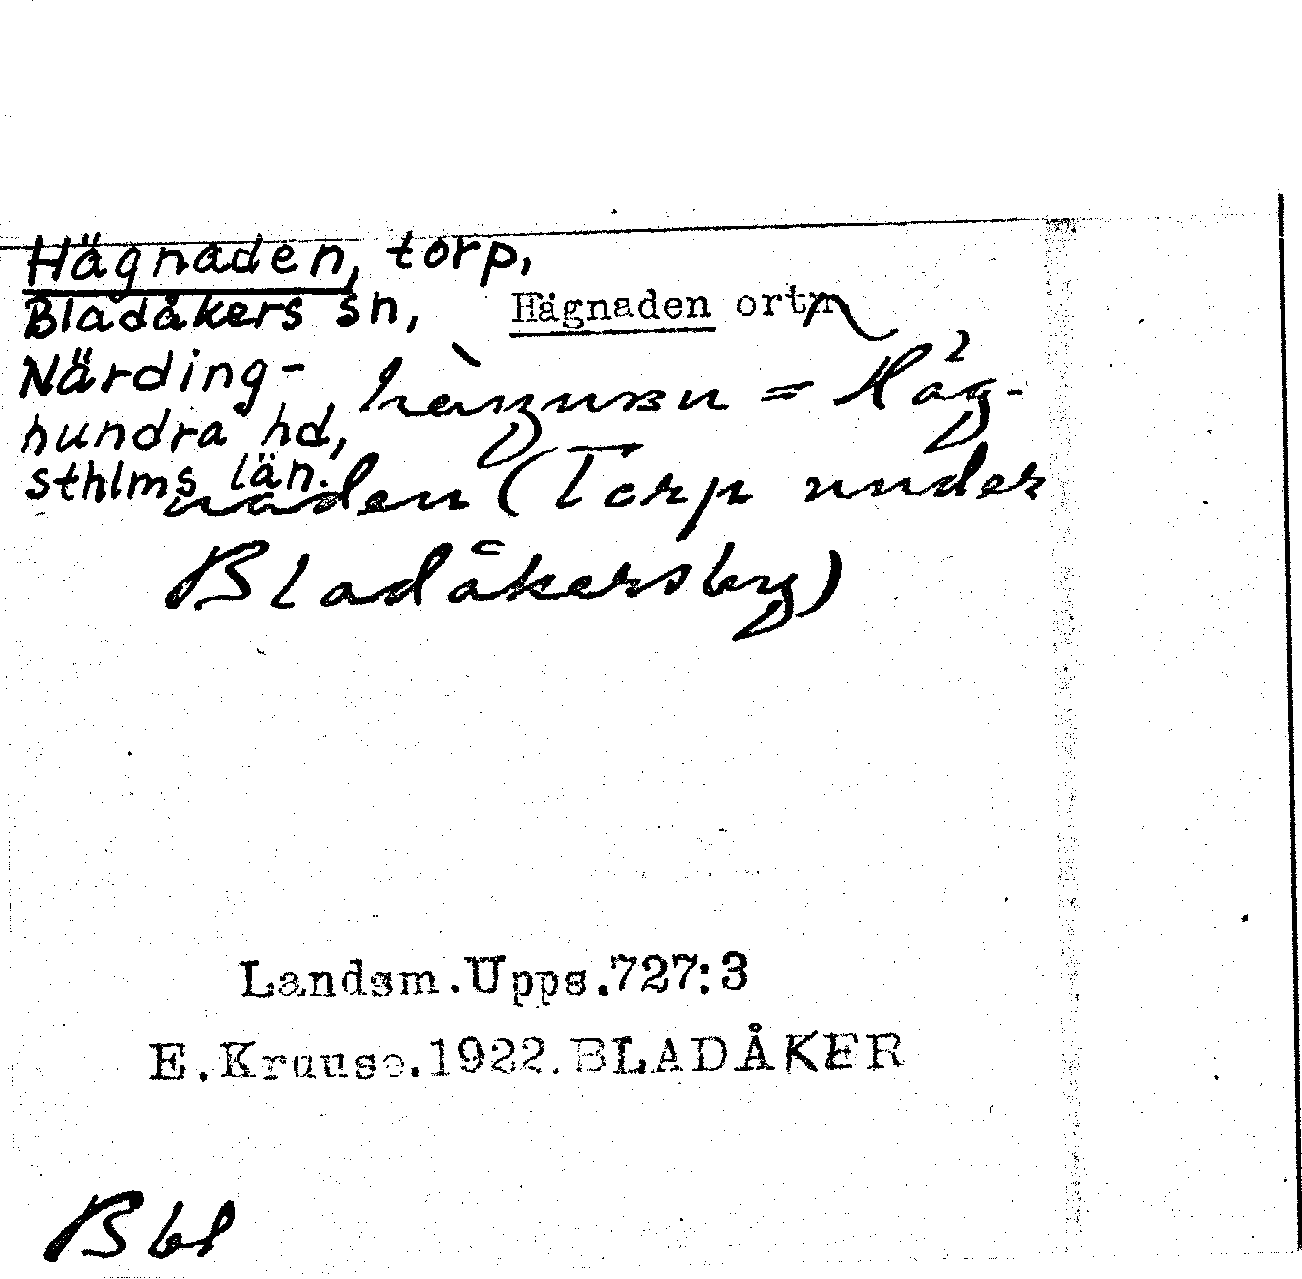 Hägnaden, torp,
Bladåkers sn,
Närding-
hundra hd,
sthlms län.
Hägnaden ortn
= Häg-
naden (Torp under
Bladåkersby)
Landsm.Upps.727:3
E.Krause.1922.BLADÅKER